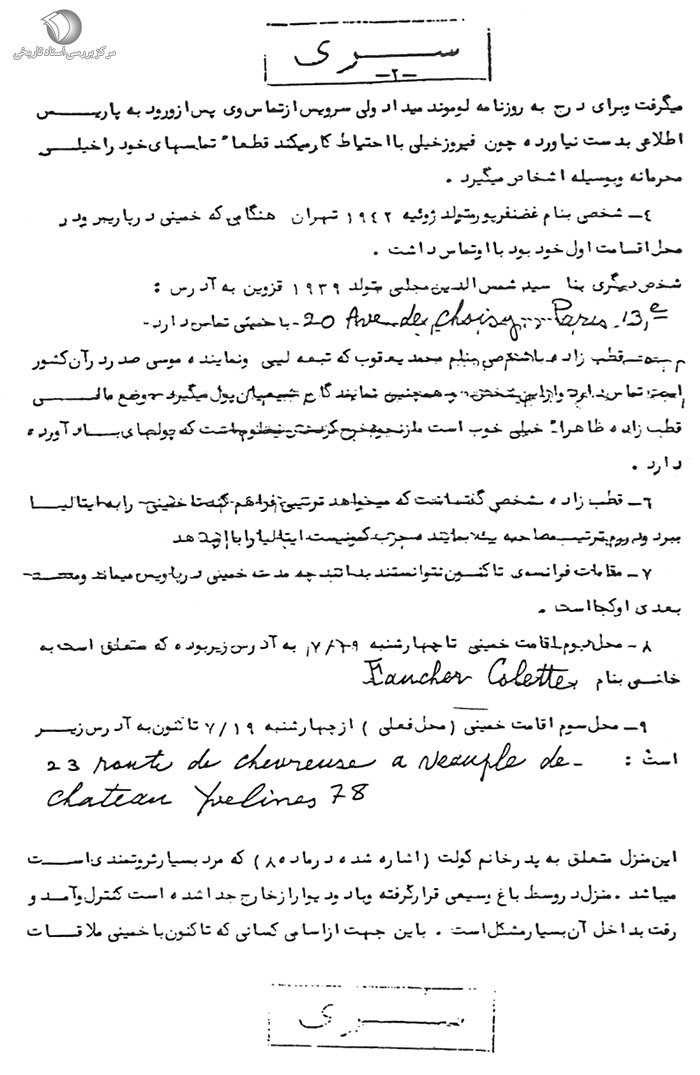 مرکز بررسی اسناد تاریخی
سری
-۲-
میگرفت وبرای درج به روزنامه لوموند میداد ولی سرویس ازتماس وی پس ازورود به پاریس
اطلاعی بدست نیاورده چون فیروزخیلی بااحتیاط کارمیکند قطعاً تماسهای خود راخیلی
محرمانه وبوسیله اشخاص میگیرد .
٤ـ شخصی بنام غضنفرپورمتولد ژوئیه ۱۹٤۲ تهران هنگامی که خمینی درپاریس ودر
محل اقامت اول خود بود بااوتماس داشت .
شخص دیگری بنا سید شمس الدین مجلبی متولد ۱۹۳۹ قزوین به آدرس :
20 Ave de Choisy Paris 13,e - باخمینی تماس دارد-
قطب زاده باشخصی بنام محمد یعقوب که تبعه لیبی ونماینده موسی صدر درآن کشور
است تماس دارد وازاین شخص و همچنین نمایندگان شیعیان پول میگیرد وضع مالی
قطب زاده ظاهراً خیلی خوب است که پولهای بادآورده
دارد .
٦ـ قطب زاده بشخصی گفته است که میخواهد ترتیبی فراهم کند تا خمینی رابه ایتالیا
ببرد ودر رم ترتیب مصاحبه حزب کمونیست ایتالیا رابااو بدهد
۷ـ مقامات فرانسوی تاکنون نتوانستند بدانند چه مدت خمینی درپاریس میماند ومقصد
بعدی اوکجااست .
۸ـ محل دوم اقامت خمینی تاچهارشنبه به آدرس زیربوده که متعلق است به
خانمی بنام Faucher Colette
۹ـ محل سوم اقامت خمینی (محل فعلی ) ازچهارشنبه ۷/۱۹ تاکنون به آدرس زیر
است :
23 route de chevreuse a neauple de-
chateau Yvelines 78
این منزل متعلق به پدرخانم کولت (اشاره شده درماده ۸) که مرد بسیارثروتمندی است
میباشد . منزل دروسط باغ وسیعی قرارگرفته وبادودیوارازخارج جداشده است کنترل وآمد و
رفت بداخل آن بسیارمشکل است . باین جهت ازاسامی کسانی که تاکنون باخمینی ملاقات
سری